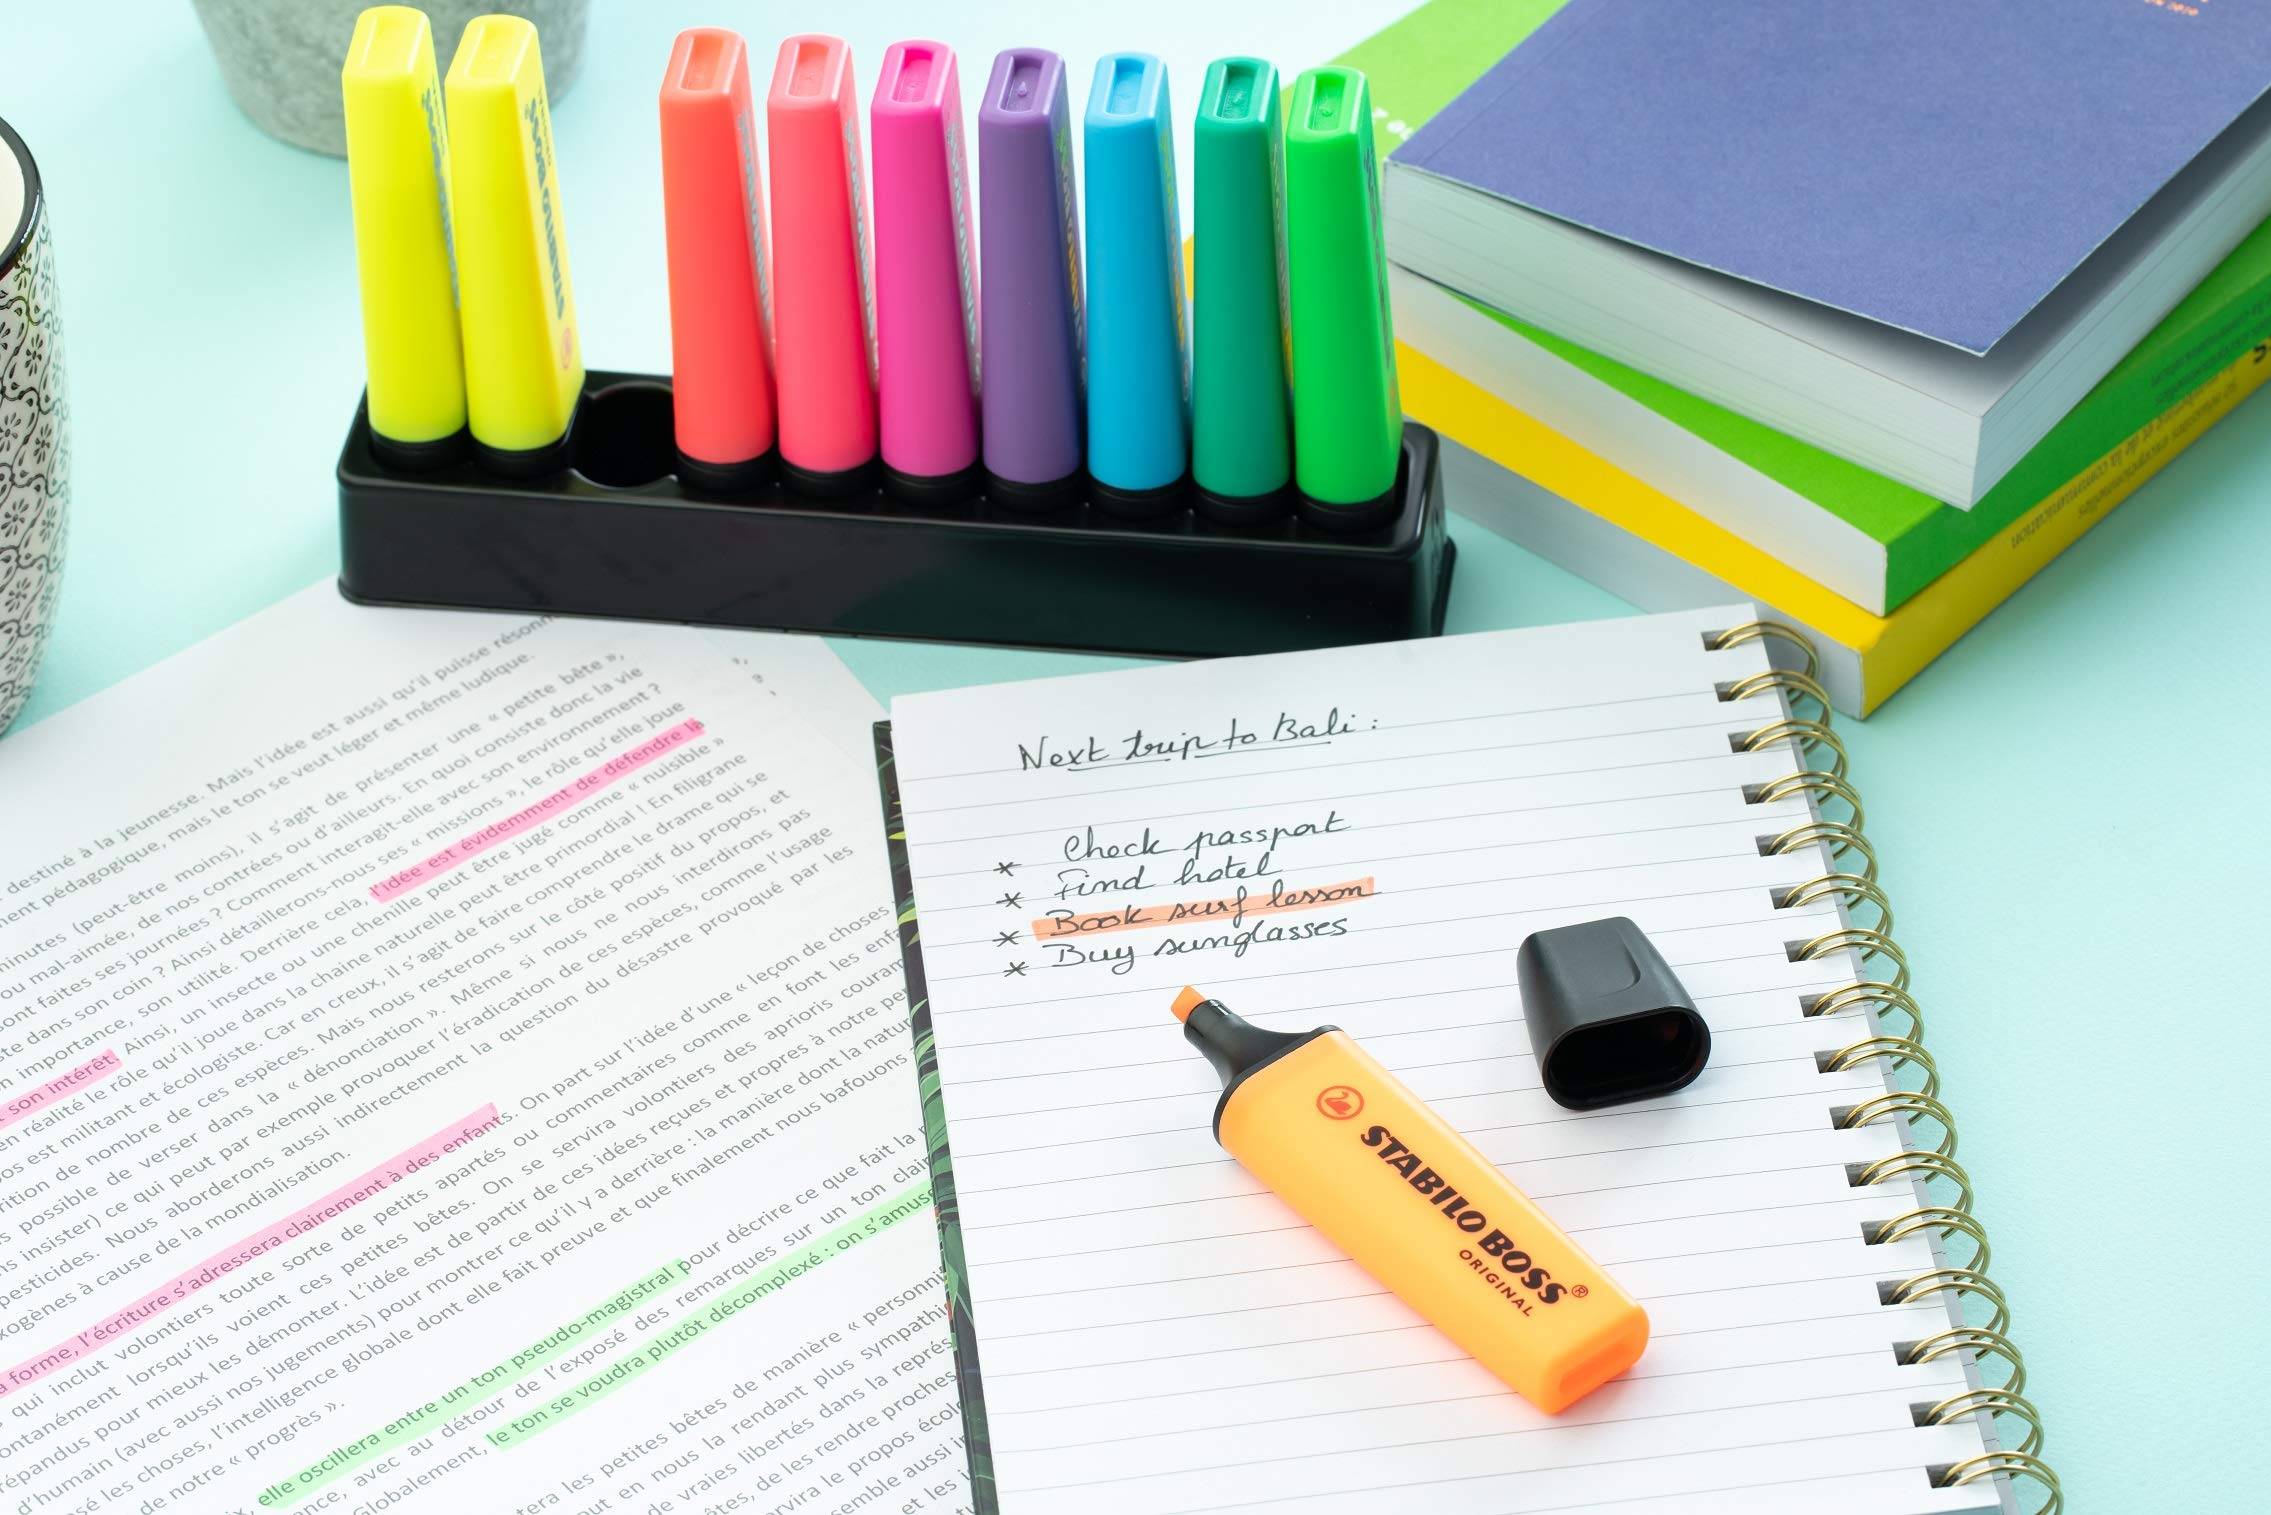 STABILO BOSS
destiné à la jeunesse. Mais l'idée est aussi qu'il puisse résonn
pédagogique, mais le ton se veut léger et même ludique.
minutes (peut-être moins), il s'agit de présenter une « petite bête »,
ou mal-aimée, de nos contrées ou d'ailleurs. En quoi consiste donc la vie
sont faites ses journées ? Comment interagit-elle avec son environnement ?
dans son coin ? Ainsi détaillerons-nous ses « missions », le rôle qu'elle joue
importance, son utilité. Derrière cela, l'idée est évidemment de défendre la
son intérêt. Ainsi, un insecte ou une chenille peut être jugé comme « nuisible »
en réalité le rôle qu'il joue dans la chaine naturelle peut être primordial ! En filigrane
est militant et écologiste. Car en creux, il s'agit de faire comprendre le drame qui se
de nombre de ces espèces. Mais nous resterons sur le côté positif du propos, et
possible de verser dans la « dénonciation ». Même si nous ne nous interdirons pas
insister) ce qui peut par exemple provoquer l'éradication de ces espèces, comme l'usage
pesticides. Nous aborderons aussi indirectement la question du désastre provoqué par les
à cause de la mondialisation.
forme, l'écriture s'adressera clairement à des enfants. On part sur l'idée d'une « leçon de choses
qui inclut volontiers toute sorte de petits apartés ou commentaires comme en font les enfa
lorsqu'ils voient ces petites bêtes. On se servira volontiers des aprioris couram
pour mieux les démonter. L'idée est de partir de ces idées reçues et propres à notre
d'humain (avec aussi nos jugements) pour montrer ce qu'il y a derrière : la manière dont la natur
les choses, l'intelligence globale dont elle fait preuve et que finalement nous bafouons
de notre « progrès ».
elle oscillera entre un ton pseudo-magistral pour décrire ce que fait la
avec au détour de l'exposé des remarques sur un ton
Globalement, le ton se voudra plutôt décomplexé : on s'amuse
les petites bêtes de manière « personni
en nous la rendant plus sympathi
de vraies libertés dans la représ
de les rendre proches
le propos
aussi
et les
Next trip to Bali :
* Check passport
* Find hotel
* Book surf lesson
* Buy sunglasses
STABILO BOSS®
ORIGINAL